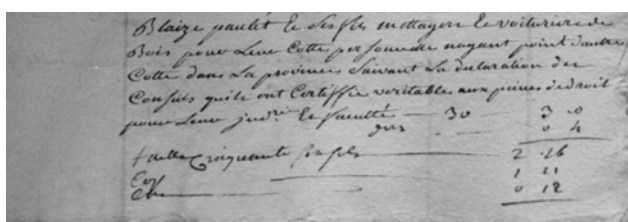 Blaize paulet & ses fils mettayers & voituriers de
Bois pour Leur Cotte personnelle nayant point d'autre
Cotte dans La province Suivant La declaration des
Consuls quils ont Certiffié veritables aux peines de droit
pour Leur & faculté — 30 — 3 .0
0 4
taille Cinquante six sols — 2 .16
1 11
0 12